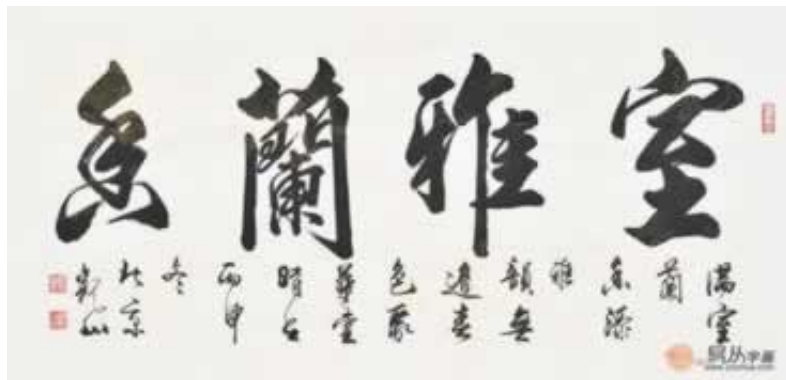 室雅蘭香
満室
蘭
香添
雅
韻無
邊春
色聚
華堂
丙申
冬
北京
易从字画